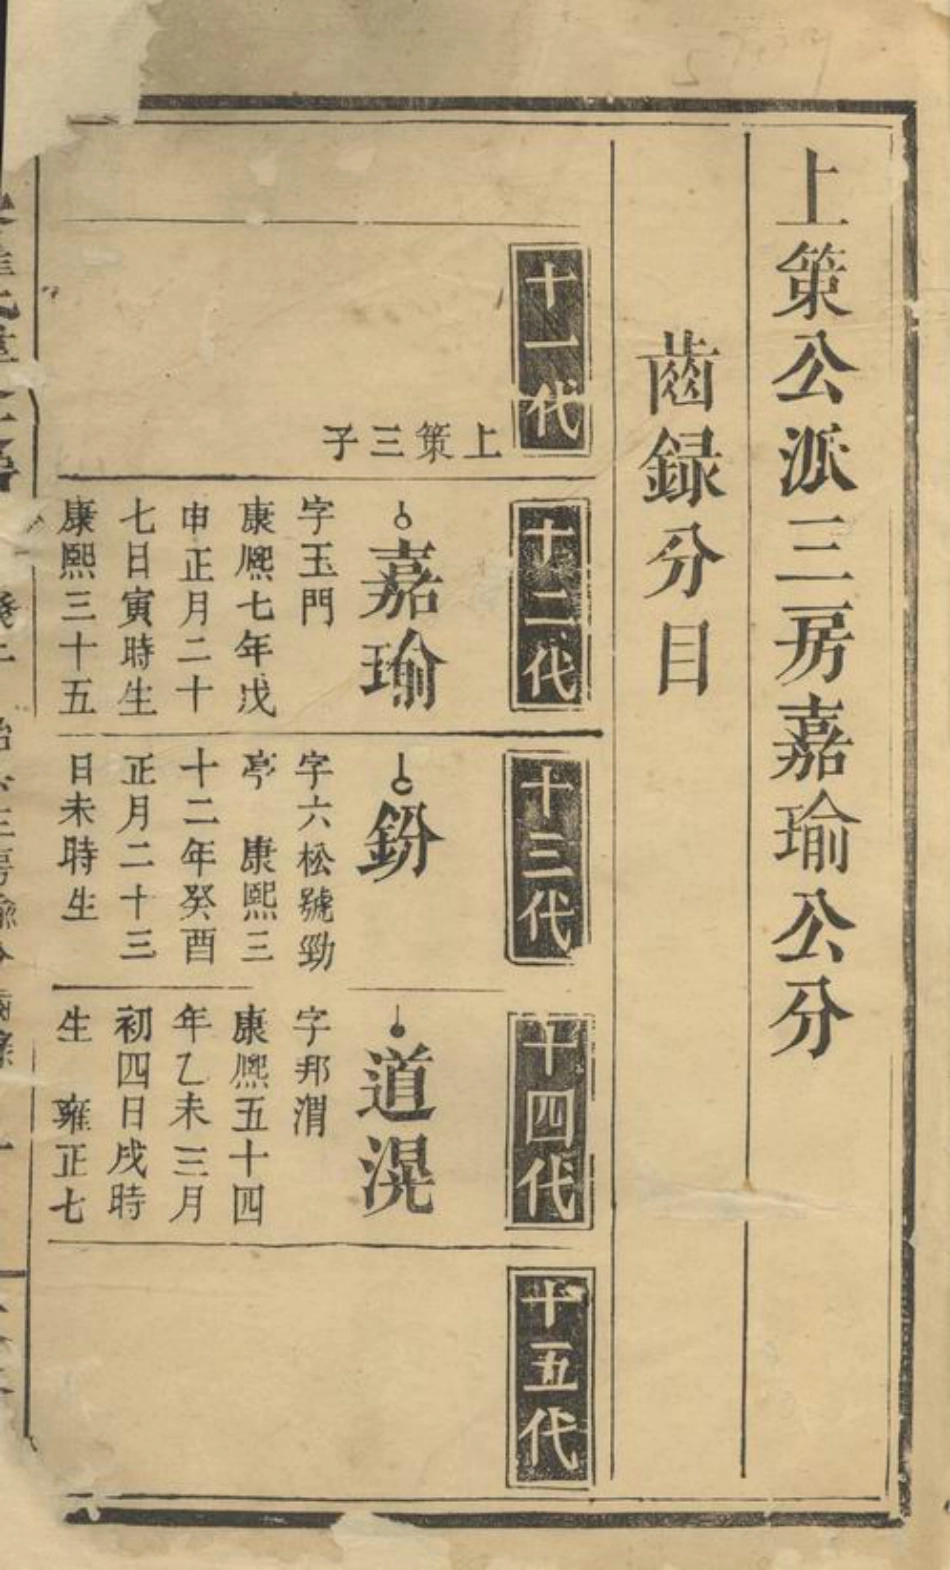 上策公派三房嘉瑜公分
齒録分目
十一代
上策三子
十二代
嘉瑜
字玉門
康熙七年戊
申正月二十
七日寅時生
康熙三十五
十三代
鈖
字六松號勁
亭 康熙三
十二年癸酉
正月二十三
日未時生
十四代
道滉
字邦渭
康熙五十四
年乙未三月
初四日戌時
生 雍正七
十五代